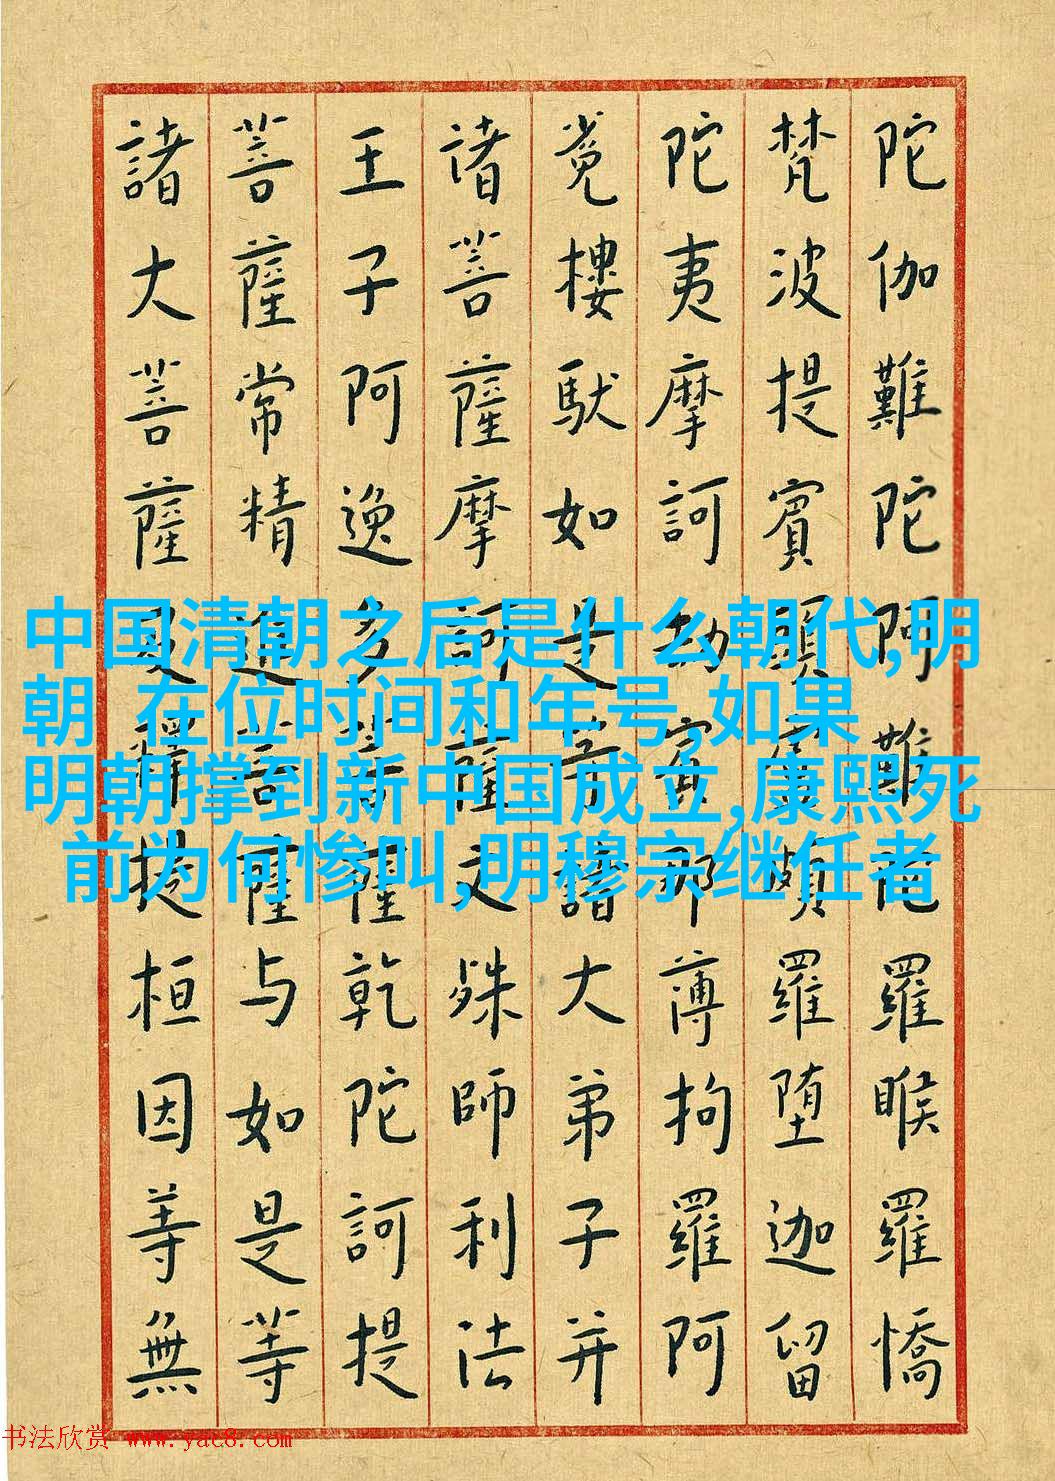 陀伽難陀阿難陀羅睺羅憍
梵波提賓頭盧頗羅堕迦留
陀夷摩訶劫賓那薄拘羅阿
㝹樓馱如是等諸大弟子并
诸菩薩摩訶薩文殊師利法
王子阿逸多菩薩乾陀訶提
菩薩常精進菩薩与如是等
諸大菩薩及釋提桓因等無
中国清朝之后是什么朝代,明
朝 在位时间和年号,如果
明朝撑到新中国成立,康熙死
前为何惨叫,明穆宗继任者
书法欣赏 www.yac8.com